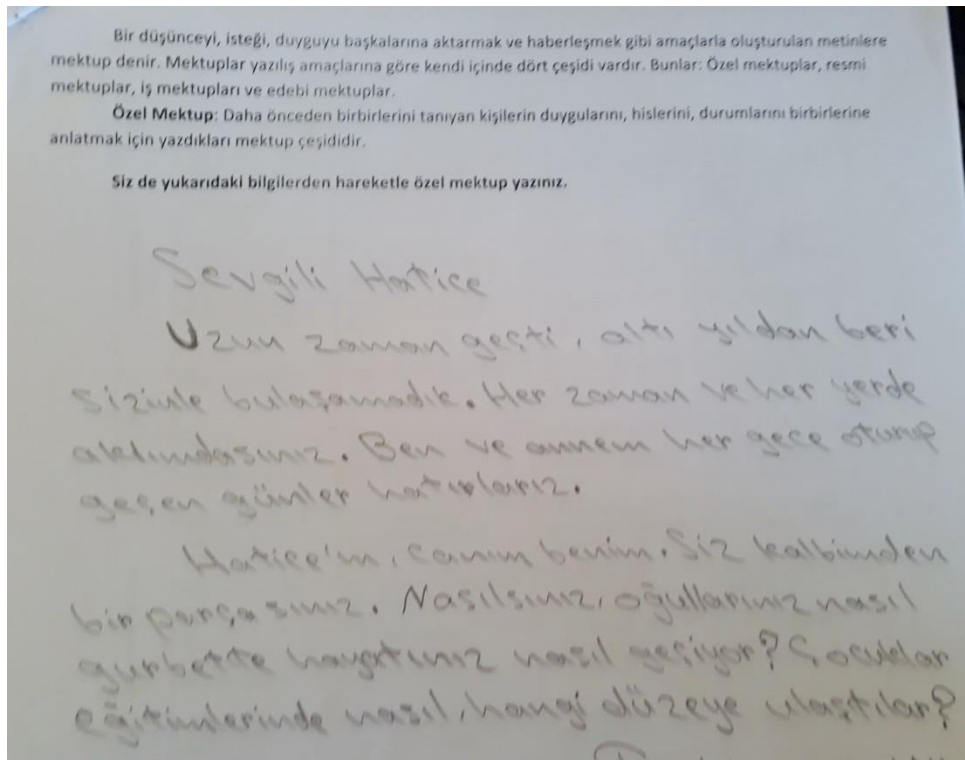 Bir düşünceyi, isteği, duyguyu başkalarına aktarmak ve haberleşmek gibi amaçlarla oluşturulan metinlere
mektup denir. Mektuplar yazılış amaçlarına göre kendi içinde dört çeşidi vardır. Bunlar: Özel mektuplar, resmi
mektuplar, iş mektupları ve edebi mektuplar.
Özel Mektup: Daha önceden birbirlerini tanıyan kişilerin duygularını, hislerini, durumlarını birbirlerine
anlatmak için yazdıkları mektup çeşididir.
Siz de yukarıdaki bilgilerden hareketle özel mektup yazınız.
Sevgili Hatice
Uzun zaman geçti, altı yıldan beri
sizinle bulaşamadık. Her zaman ve her yerde
aklımdasınız. Ben ve annem her gece oturup
geçen günler hatırlarız.
Hatice'm, canım benim. Siz kalbimden
bir parçasınız. Nasılsınız, oğullarınız nasıl
gurbette hayatınız nasıl geçiyor? Çocuklar
eğitimlerinde nasıl, hangi düzeye ulaştılar?